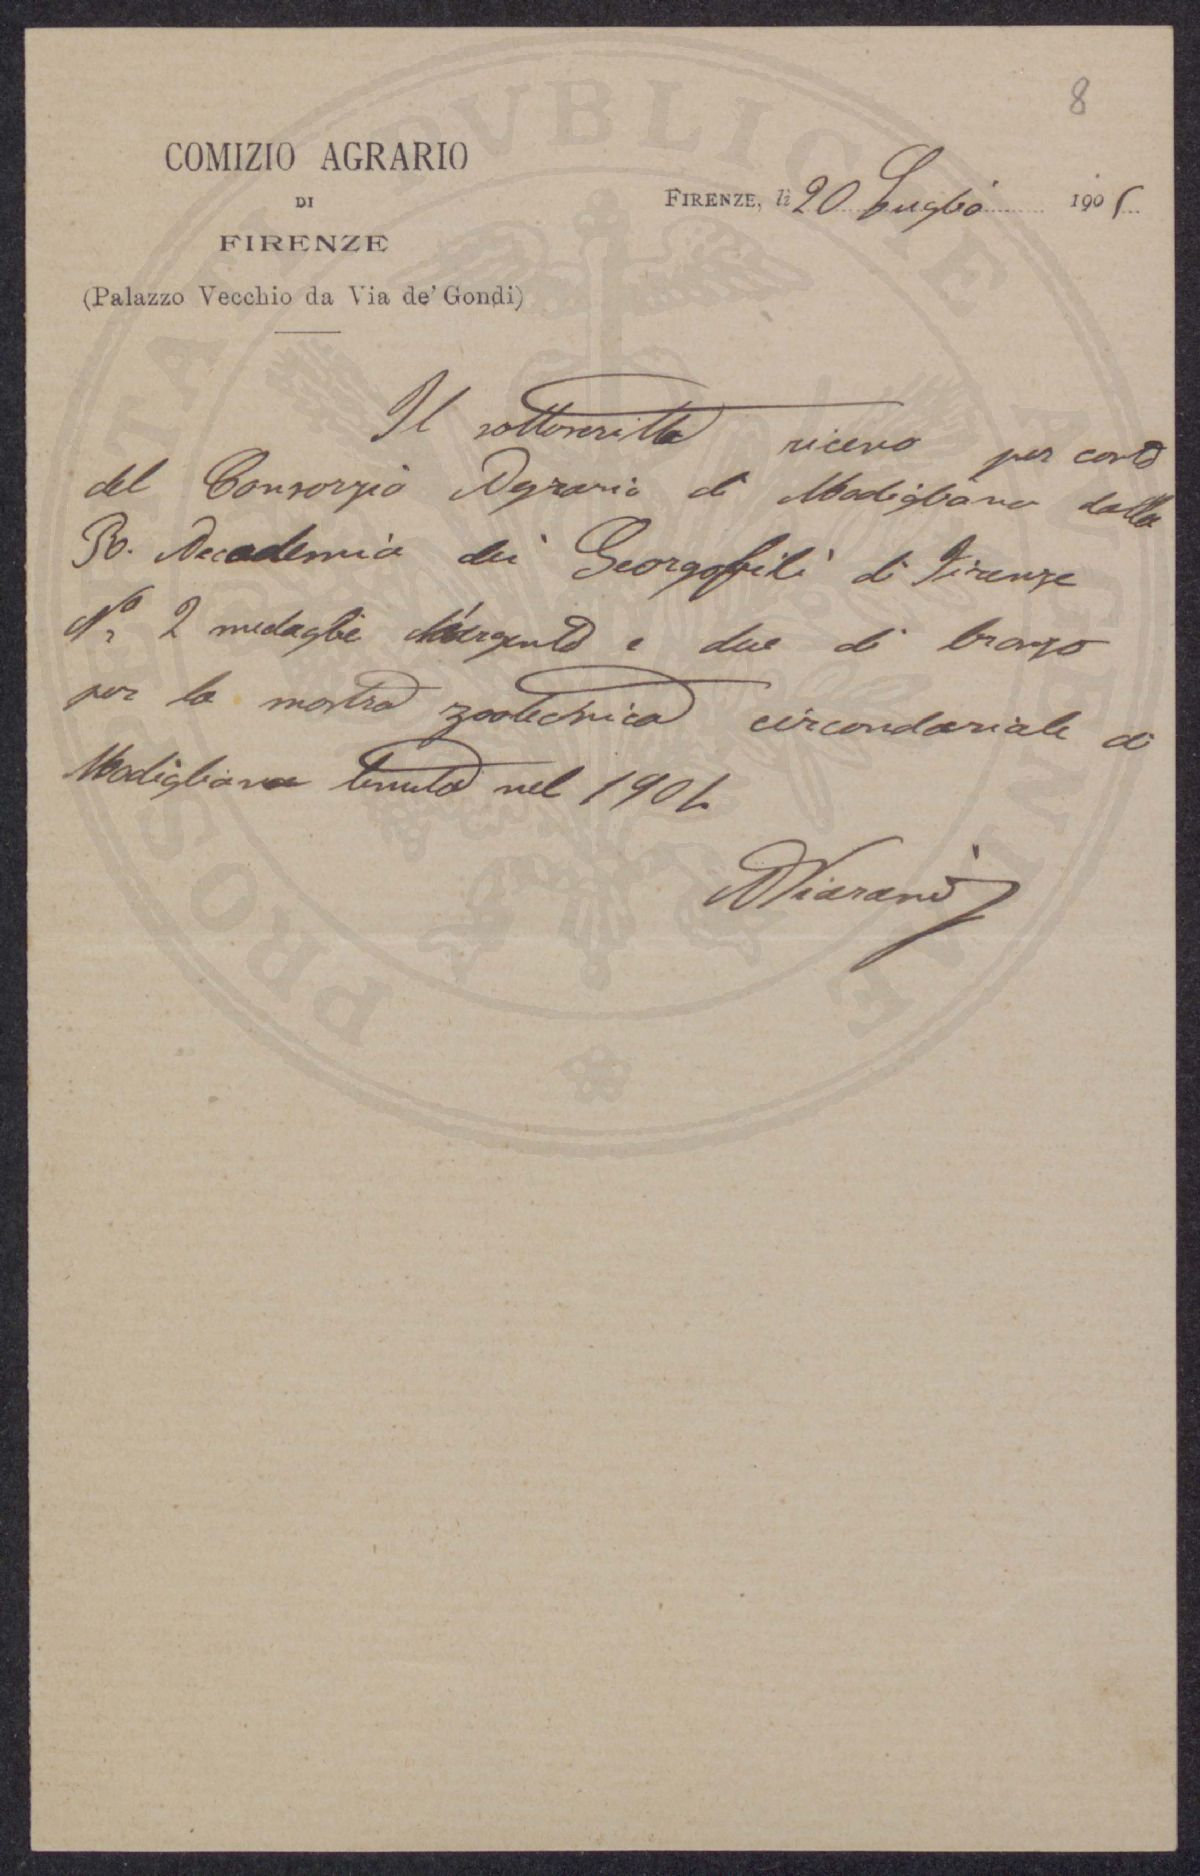 8
COMIZIO AGRARIO
DI
FIRENZE
(Palazzo Vecchio da Via de' Gondi)
FIRENZE, lì 20 Luglio 190
Il sottoscritto riceve per conto
del Consorzio Agrario di Modigliana dalla
R. Accademia dei Georgofili di Firenze
N.º 2 medaglie d'argento e due di bronzo
per la mostra zootecnica circondariale di
Modigliana tenuta nel 190
PROSPERITATI PUBLICAE AUGENDAE